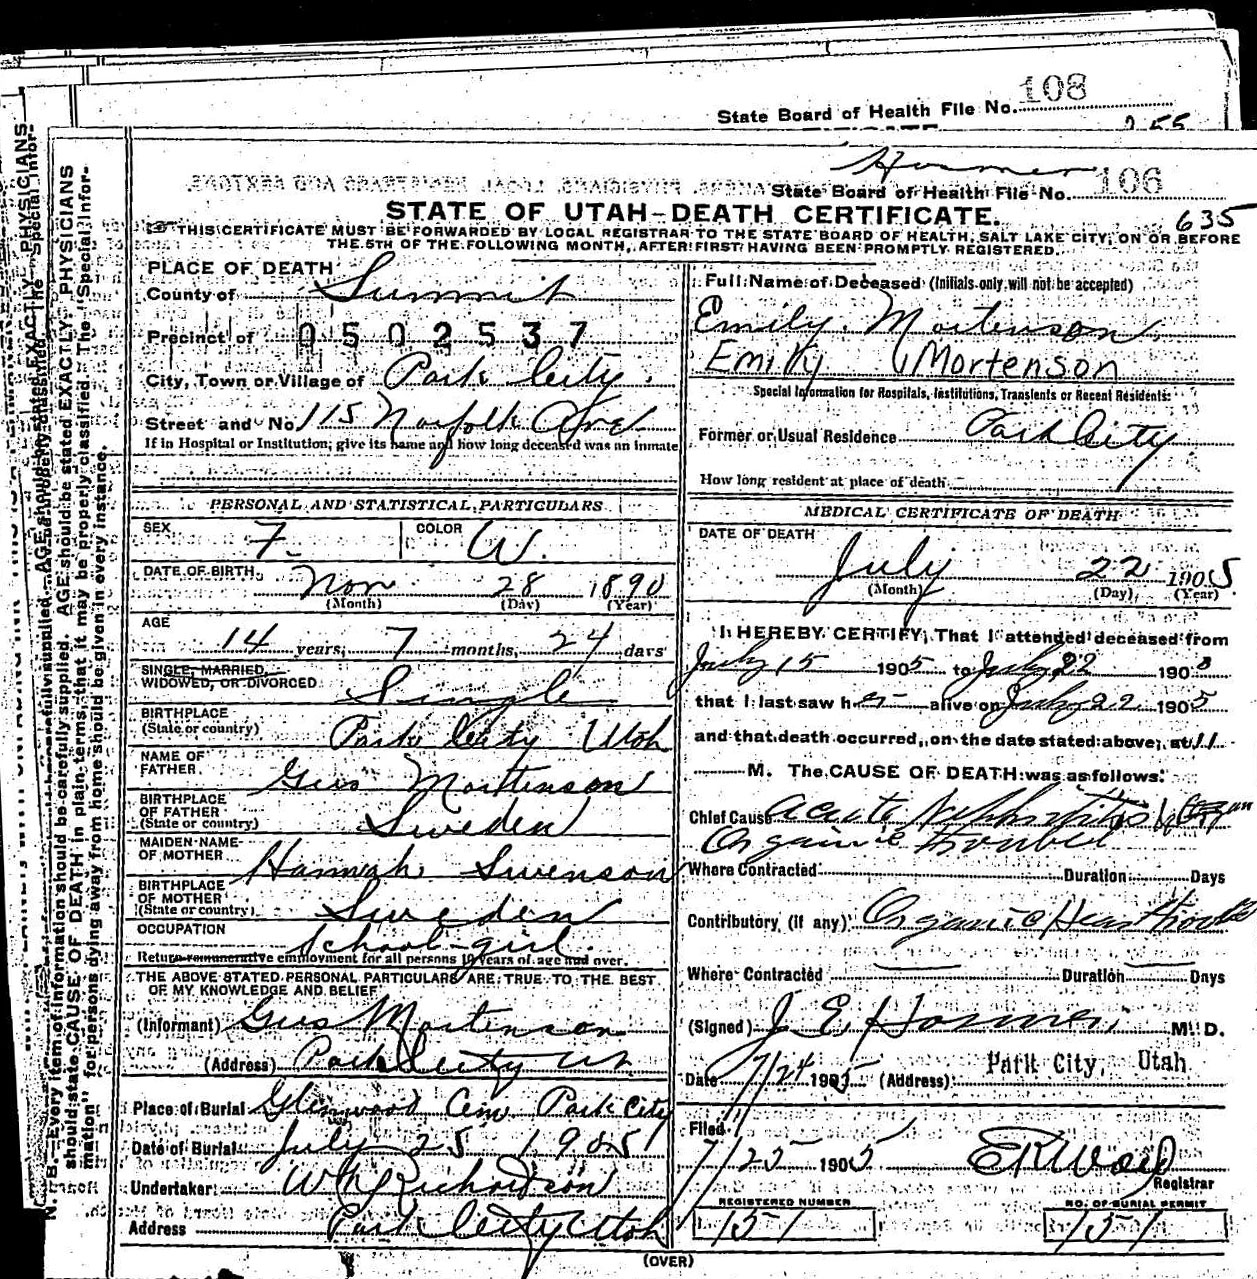 State Board of Health File No. 108
255
Hosmer
State Board of Health File No. 106
STATE OF UTAH-DEATH CERTIFICATE.
635
THIS CERTIFICATE MUST BE FORWARDED BY LOCAL REGISTRAR TO THE STATE BOARD OF HEALTH, SALT LAKE CITY, ON OR BEFORE
THE 5TH OF THE FOLLOWING MONTH, AFTER FIRST HAVING BEEN PROMPTLY REGISTERED.
PLACE OF DEATH
County of Summit
Precinct of 0502537
City, Town or Village of Park City.
Street and No. 115 Norfolk Ave
If in Hospital or Institution, give its name and how long deceased was an inmate
PERSONAL AND STATISTICAL PARTICULARS
SEX F. COLOR W.
DATE OF BIRTH Nov 28 1890
(Month) (Day) (Year)
AGE
14 years, 7 months, 24 days
SINGLE, MARRIED,
WIDOWED, OR DIVORCED Single
BIRTHPLACE
(State or country) Park City Utah
NAME OF
FATHER Gus Mortenson
BIRTHPLACE
OF FATHER
(State or country) Sweden
MAIDEN NAME
OF MOTHER Hannah Swenson
BIRTHPLACE
OF MOTHER
(State or country) Sweden
OCCUPATION School-girl.
Return remunerative employment for all persons 10 years of age and over.
THE ABOVE STATED PERSONAL PARTICULARS ARE TRUE TO THE BEST
OF MY KNOWLEDGE AND BELIEF
(Informant) Gus Mortenson
(Address) Park City Ut
Place of Burial Glenwood Cem Park City
Date of Burial July 25 1905
Undertaker W H Richardson
Address Park City Utah
Full Name of Deceased (Initials only will not be accepted)
Emily Mortenson
Emily Mortenson
Special Information for Hospitals, Institutions, Transients or Recent Residents:
Former or Usual Residence Park City
How long resident at place of death
MEDICAL CERTIFICATE OF DEATH
DATE OF DEATH
July 22 1905
(Month) (Day) (Year)
I HEREBY CERTIFY, That I attended deceased from
July 15 1905 to July 22 190
that I last saw her alive on July 22 1905
and that death occurred, on the date stated above, at 11
M. The CAUSE OF DEATH was as follows:
Chief Cause Acute Nephritis
Organic trouble
Where Contracted Duration Days
Contributory (if any) Organic Heart
Where Contracted Duration Days
(Signed) J. E. Hosmer M. D.
Date 7/24 1905 (Address) Park City, Utah
Filed
7/25 1905
Registrar
REGISTERED NUMBER
151
NO. OF BURIAL PERMIT
151
(OVER)
N. B.—Every item of information should be carefully supplied. AGE should be stated EXACTLY. PHYSICIANS
should state CAUSE OF DEATH in plain terms, that it may be properly classified. The "Special Infor-
mation" for persons dying away from home should be given in every instance.